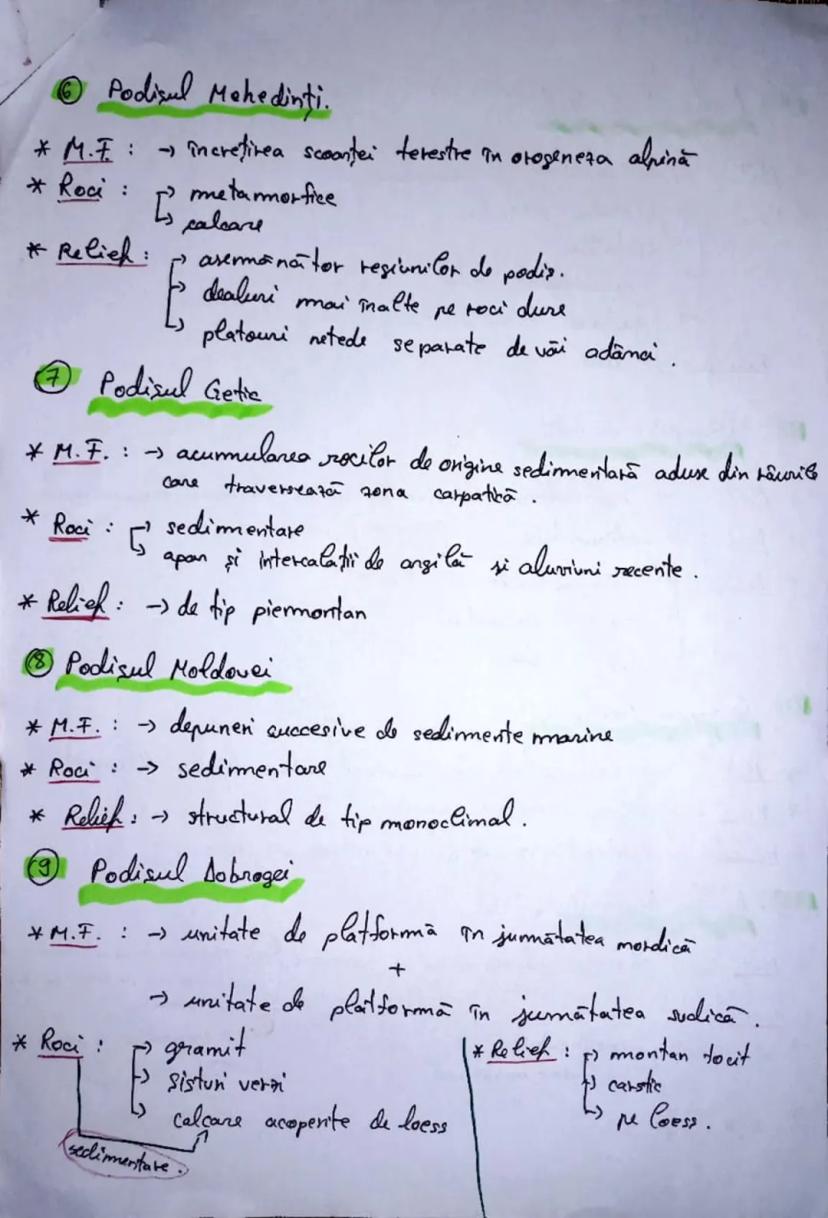 ⑥ Podișul Mehedinți.
* M.F : → încrețirea scoarței terestre în orogeneza alpină
* Roci : → metamorfice
↳ calcare
* Relief : → asemănător regiunilor de podiș.
→ dealuri mai înalte pe roci dure
↳ platouri netede separate de văi adânci.
⑦ Podișul Getic
* M.F. : → acumularea rocilor de origine sedimentară aduse din râurile
care traversează zona carpatică.
* Roci : → sedimentare
↳ apar și intercalații de argilă și aluviuni recente.
* Relief : → de tip piemontan
⑧ Podișul Moldovei
* M.F. : → depuneri succesive de sedimente marine
* Roci : → sedimentare
* Relief : → structural de tip monoclimal.
⑨ Podișul Dobrogei
* M.F. : → unitate de platformă în jumătatea nordică
+
→ unitate de platformă în jumătatea sudică.
* Roci : → granit
→ șisturi verzi
↳ calcare acoperite de loess
sedimentare.
* Relief : → montan tocit
→ carstic
↳ pe loess.